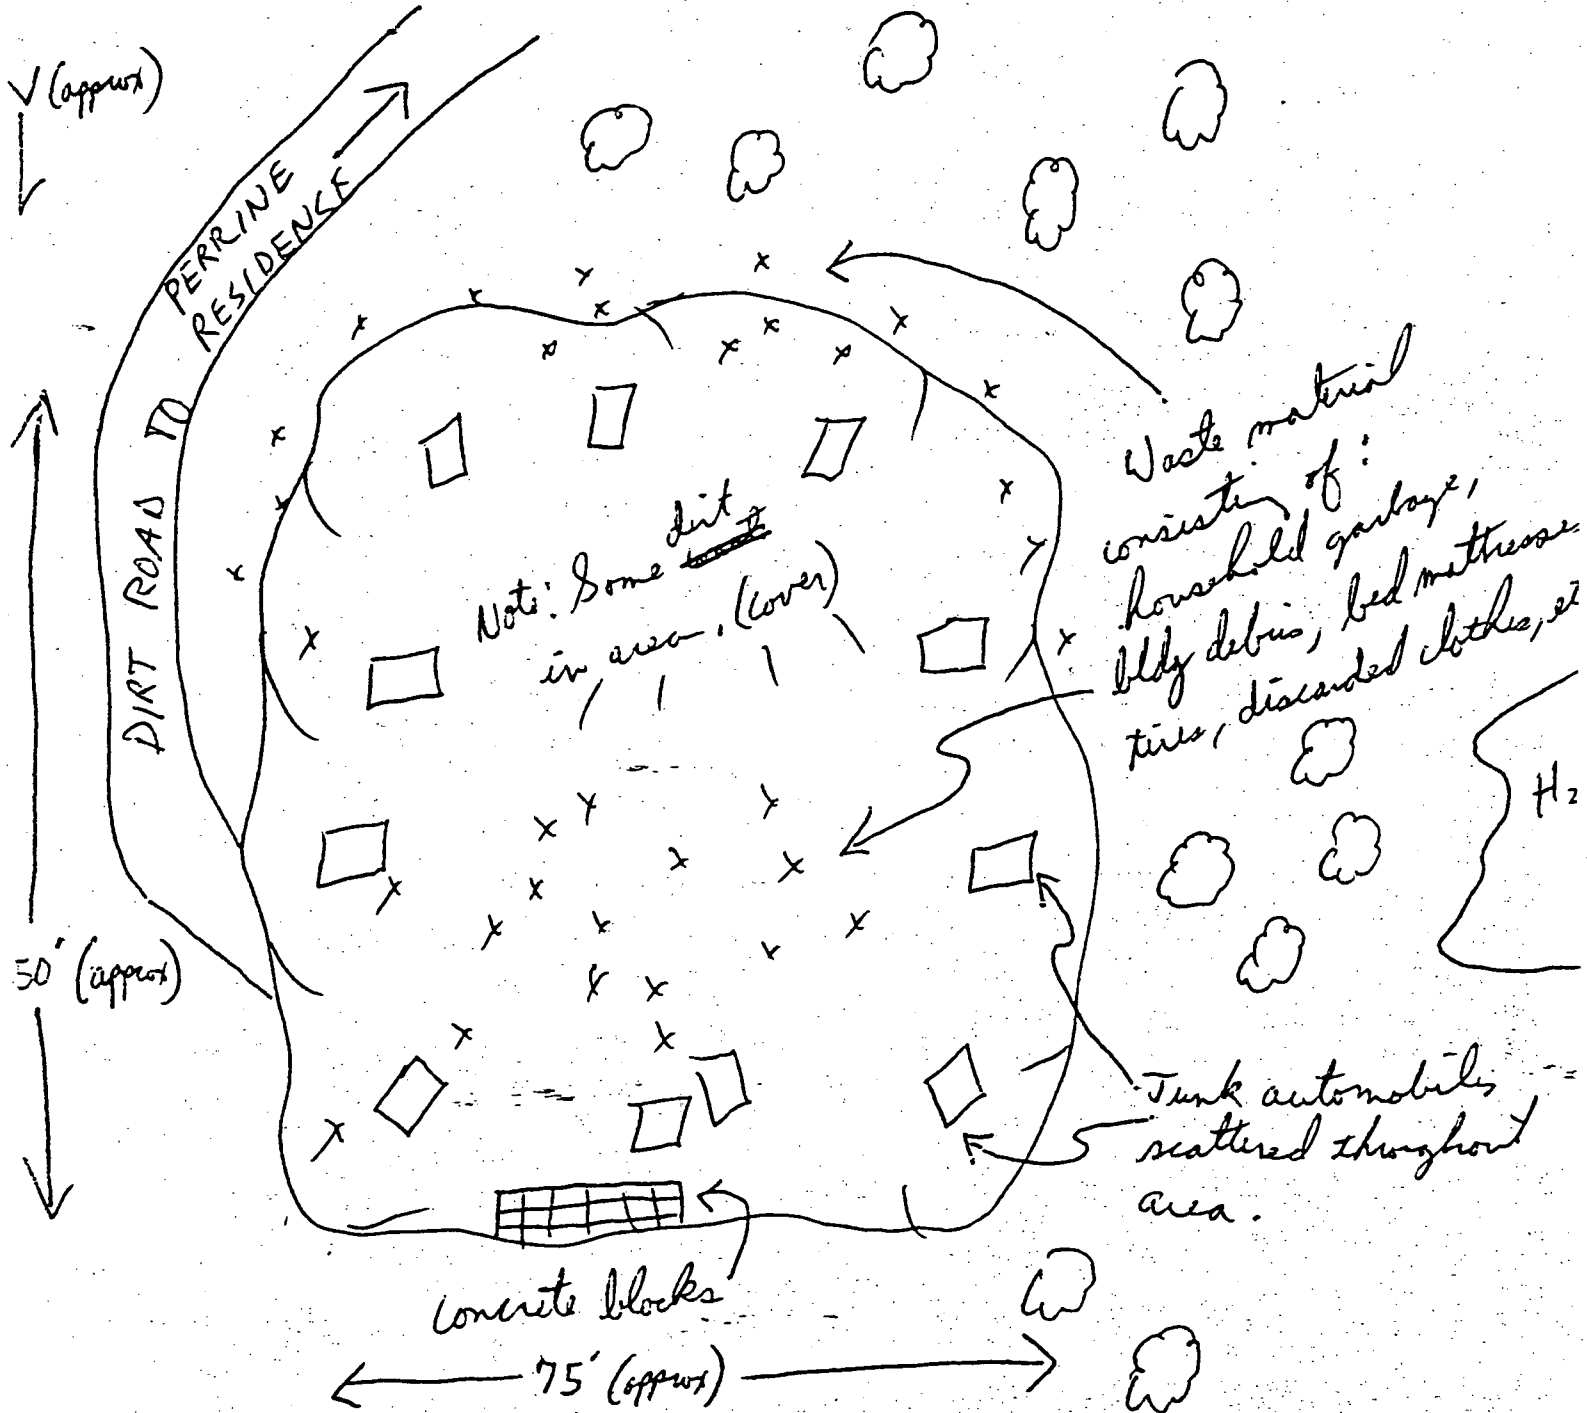 V (approx)
DIRT ROAD TO
PERRINE
RESIDENCE
Note: Some dirt
in area. (cover)
Waste material
consisting of:
household garbage,
bldg debris, bed mattresse
tires, discarded clothes, et
H2
50' (approx)
Junk automobiles
scattered throughout
area.
concrete blocks
75' (approx)